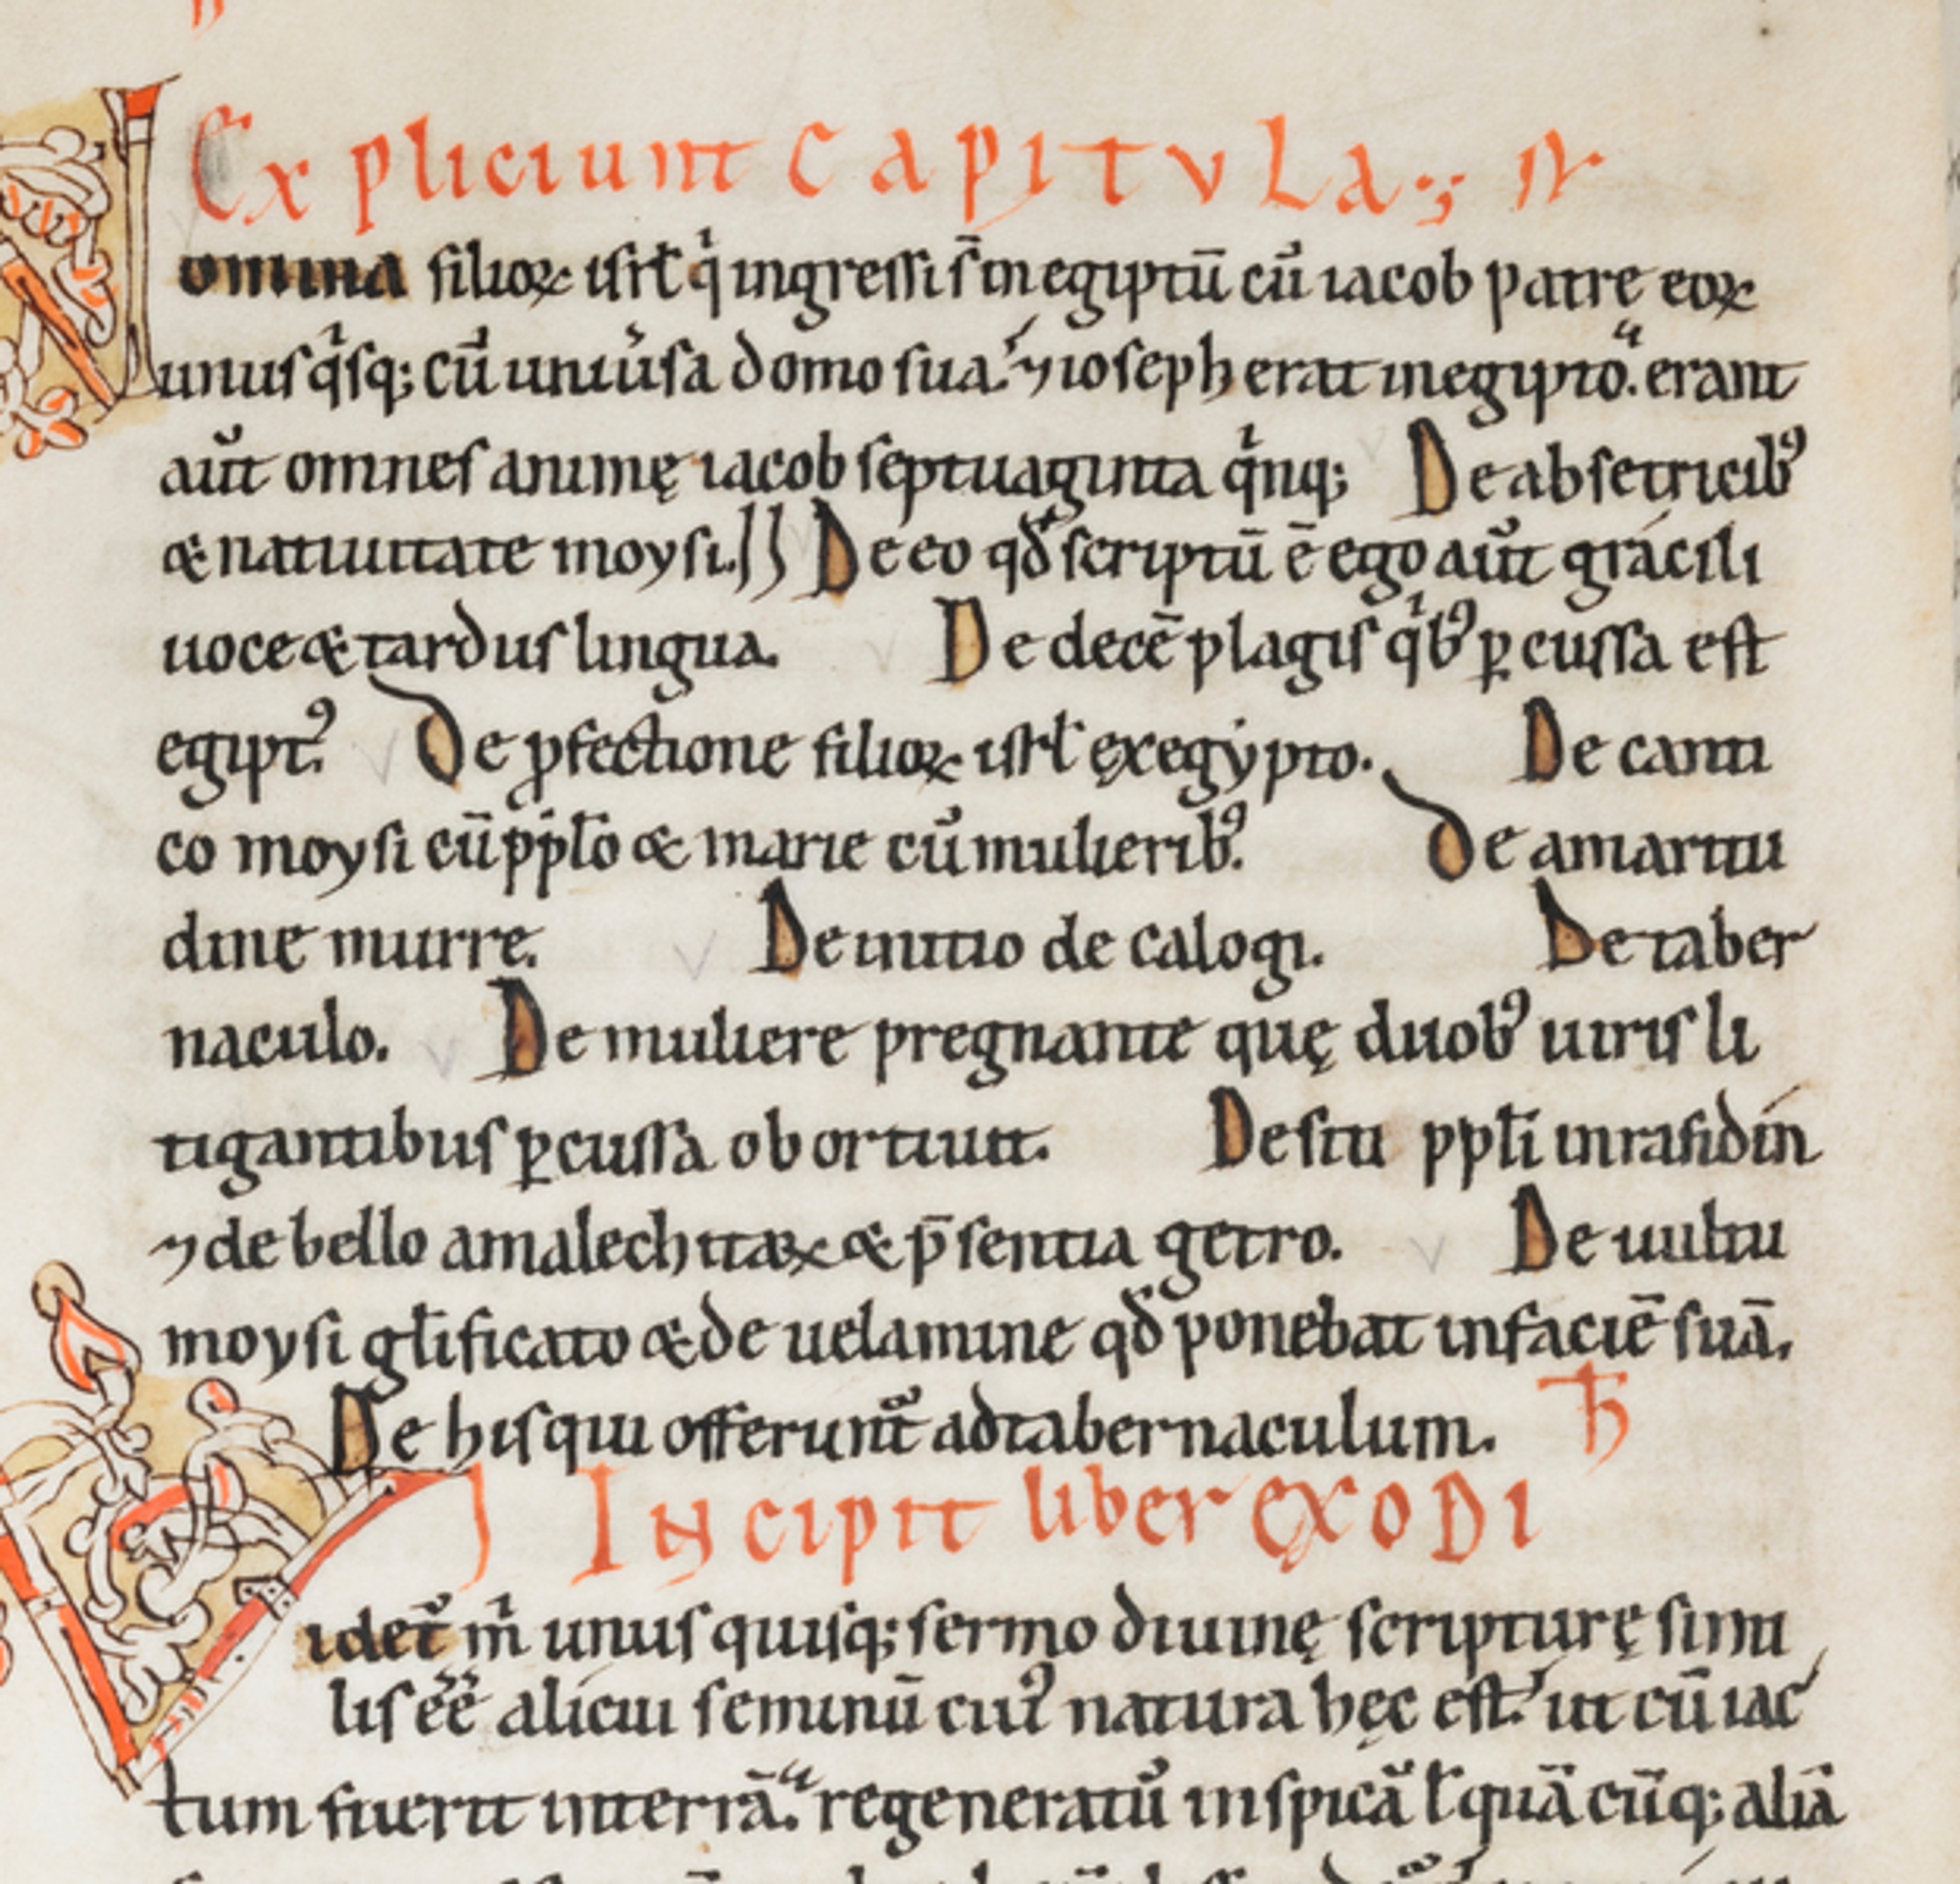 Expliciunt capitula
Nomina filioꝝ isrł qⁱ ingressi s̄ in egiptū cū iacob patrę eoꝝ
unusqⁱsq; cū uniũsa domo sua. ⁊ ioseph erat in egipto. erant
aũt omnes animę iacob septuaginta qⁱnq; De absetricibꝰ
& natiuitate moysi. De eo qđ scriptū ē ego aũt gracili
uoce & tardus lingua. De decē plagis qⁱbꝰ ꝑcussa est
egiptꝰ. De ꝓfectione filioꝝ isrł ęxegẏpto. De canti
co moysi cū ppło & marie cū mulieribꝰ. De amaritu
dine murre. De initio de calogi. De taber
naculo. De muliere pregnante quę duobꝰ uiris li
tigantibus ꝑcussa obortiuit. De situ ppłi in rafidin
⁊ de bello amalechitaꝝ & p̄sentia getro. De uultu
moysi głificato & de uelamine qđ ponebat in faciē suā.
De his qui offerunt̃ ad tabernaculum.
Incipit liber exodi
Videt̃ mⁱ unus quisq; sermo diuinę scripturę simi
lis ēē alicui seminū cuiꝰ natura hęc est. ut cū iac
tum fuerit in terrā. regeneratū in spicā ł quā cūq; aliā